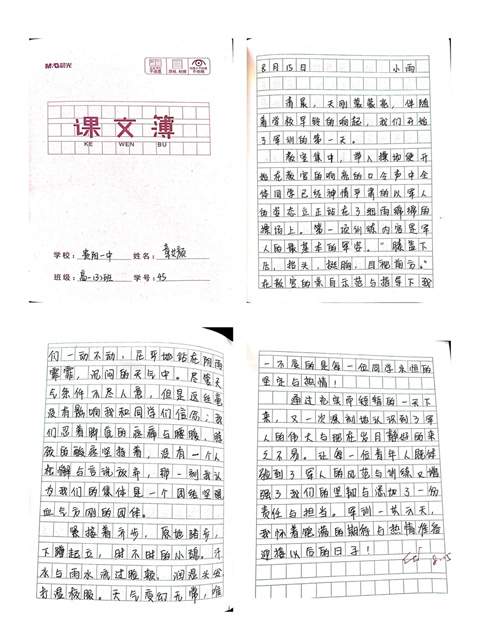 M&G晨光
课文簿
KE WEN BU
学校：贵阳一中 姓名：
班级：高一(3)班 学号：45
8月15日 小雨
清晨，天刚蒙蒙亮，伴随
着学校早铃的响起，我们开始
了军训的第一天。
教官集中，带入操场便开
始在教官的响亮的口令声中全
体同学已经神情严肃的以军人
的姿态立正站在了细雨绵绵的
操场上。第一项训练内容是军
人的最基本的军姿。“膝盖下
压，抬头，挺胸，目视前方。”
在教官的亲自示范与指导下我
们一动不动，屹立地站在阴雨
霏霏，沉闷的天气中。尽管天
气条件不尽人意，但是返丝毫
没有影响我和同学们信心；我
们忍着脚底的疼痛与腰腹、
的酸痛坚持着，没有一个人
松懈与言说放弃，那一刻我认
为我们的集体是一个团结坚强
血气方刚的团体。
紧接着齐步，原地踏步，
下蹲起立，时不时的小憩。汗
水与雨水流过脸颊，润湿头发
打湿衣服。天气变幻无常，唯
一不变的是每一位同学永恒的
坚定与热情！
通过充实而短暂的一天下
来，又一次深刻地认识到了军
人的伟大与现在岁月静好的来
之不易。让每一位青年人既体
验到了军人的风范与训练又增
强了我们的坚韧与添加了一份
责任与担当。军训一共六天，
我怀着饱满的期待与热情准备
迎接以后的日子！
8.15